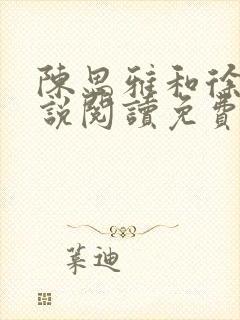 陳思雅和徐
說閱讀免費
葉迪